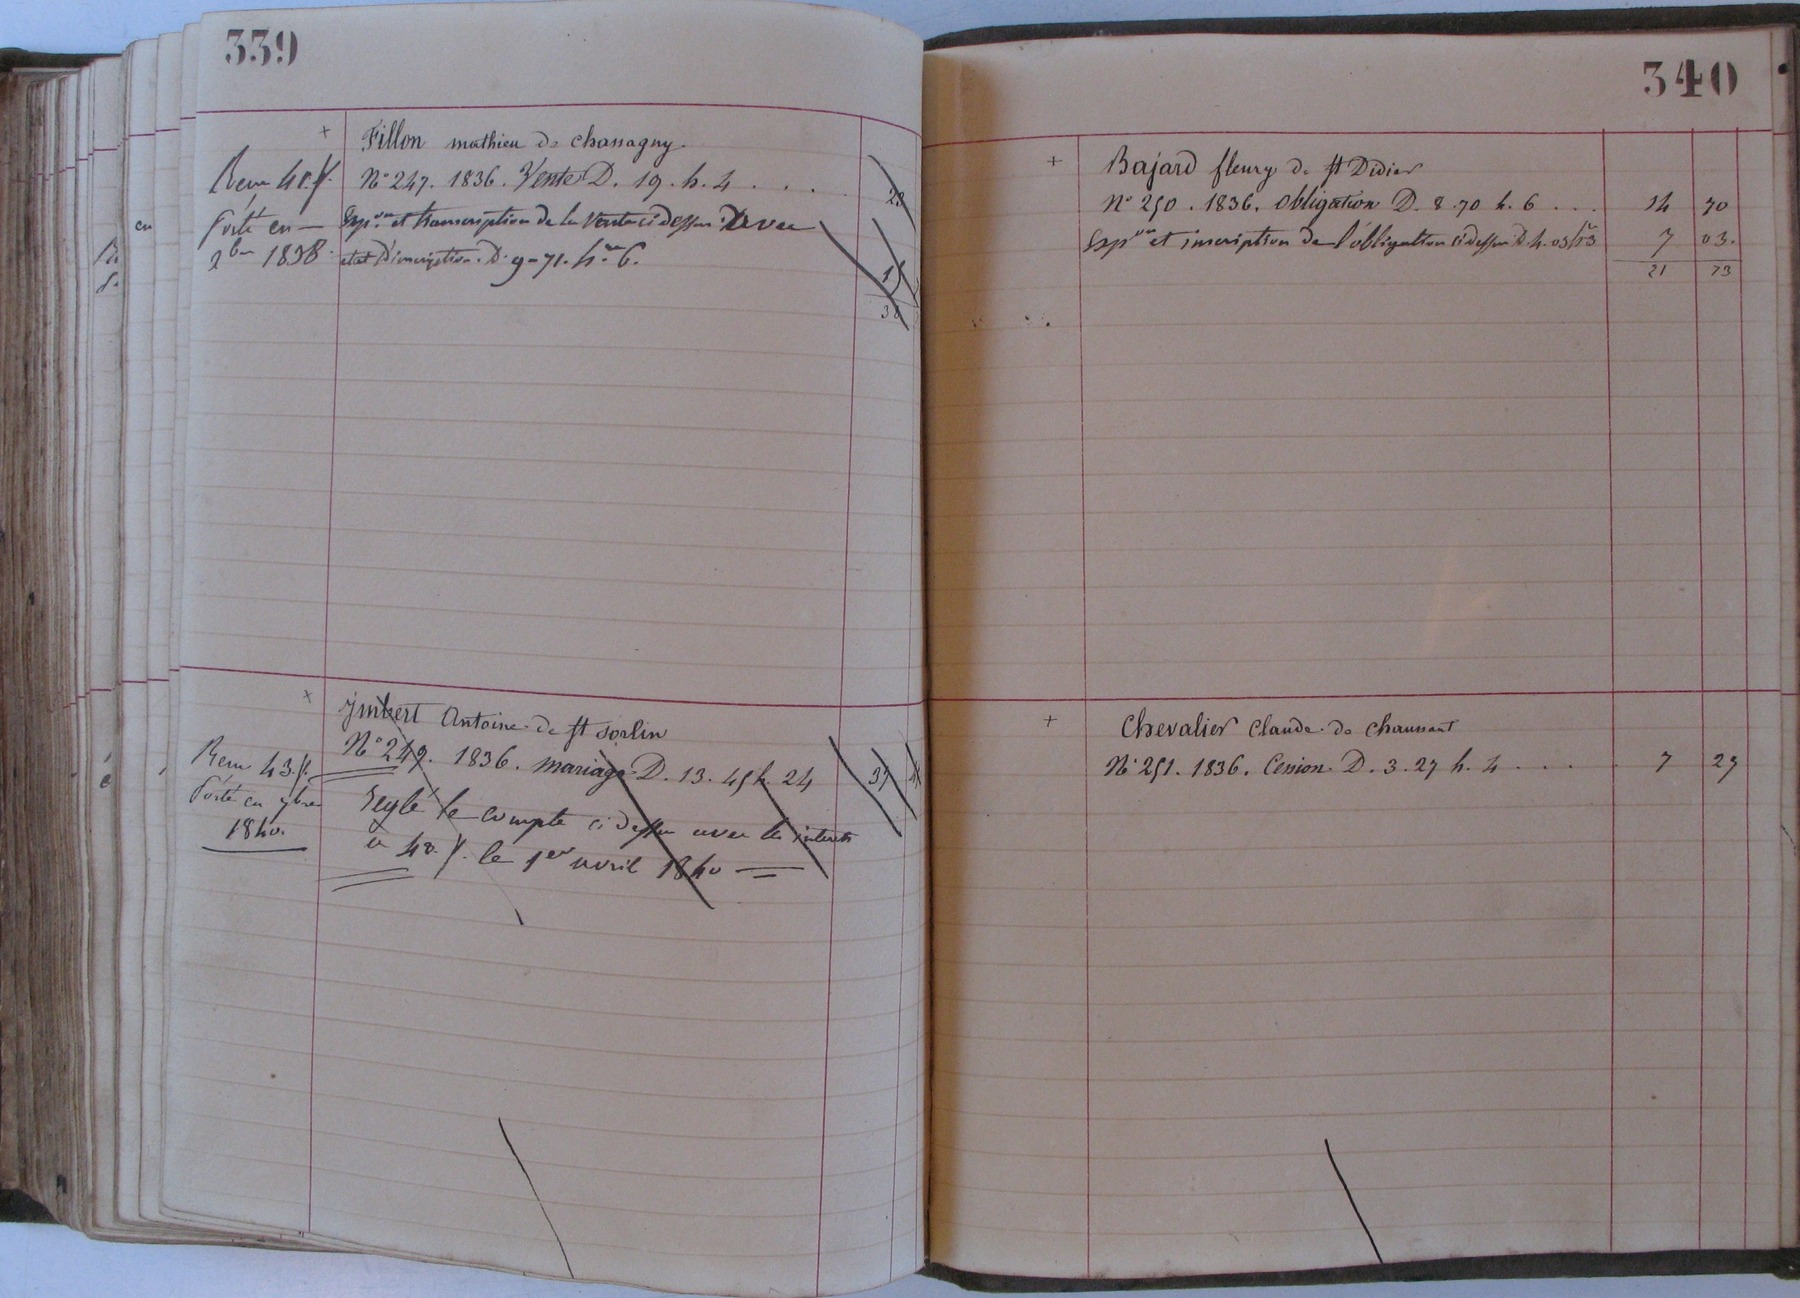 339
+
Fillon mathieu de chassagny.
Reçu 40 f.
N° 247. 1836. Vente D. 19. h. 4 . . .
23
Porté en —
Exp.on et transcription de la vente ci dessus avec
xbre 1838.
etat d'inscription. D. 9-71. h.re 6.
15
38
+
Imbert Antoine de st Sorlin
Reçu 43 f.
N° 249. 1836. mariage D. 13. 45 h. 24
37
Porté en 9bre
1840.
Reglé le compte ci dessus avec les interets
a 48 f. le 1er avril 1840 —
340
+
Bajard fleury de st Didier
N° 250. 1836. Obligation D. 8.70 h. 6 . . . 14 70
Exp.on et inscription de l'obligation ci dessus D. h. 7 03.
21 73
+
Chevalier Claude de Chaussant
N° 251. 1836. Cession. D. 3. 27 h. 4 . . . . 7 27